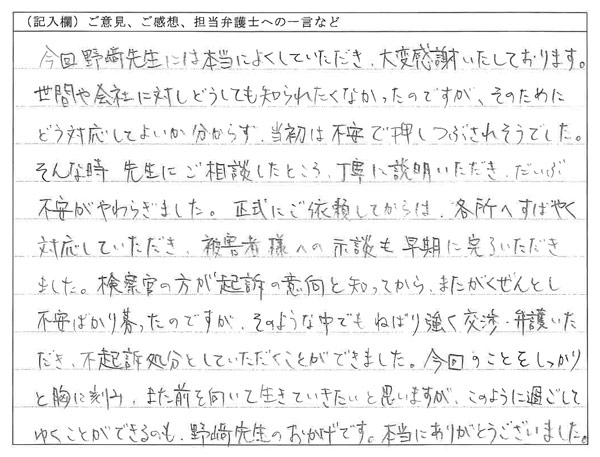 （記入欄）ご意見、ご感想、担当弁護士への一言など
今回野﨑先生には本当によくしていただき、大変感謝いたしております。
世間や会社に対しどうしても知られたくなかったのですが、そのために
どう対応してよいか分からず、当初は不安で押しつぶされそうでした。
そんな時 先生にご相談したところ、丁寧に説明いただき、だいぶ
不安がやわらぎました。正式にご依頼してからは、各所へすばやく
対応していただき、被害者様への示談も早期に完了いただき
ました。検察官の方が起訴の意向と知ってから、またがくぜんとし
不安ばかり募ったのですが、そのような中でもねばり強く交渉・弁護いた
だき、不起訴処分としていただくことができました。今回のことをしっかり
と胸に刻み、また前を向いて生きていきたいと思いますが、このように過ごして
ゆくことができるのも、野﨑先生のおかげです。本当にありがとうございました。